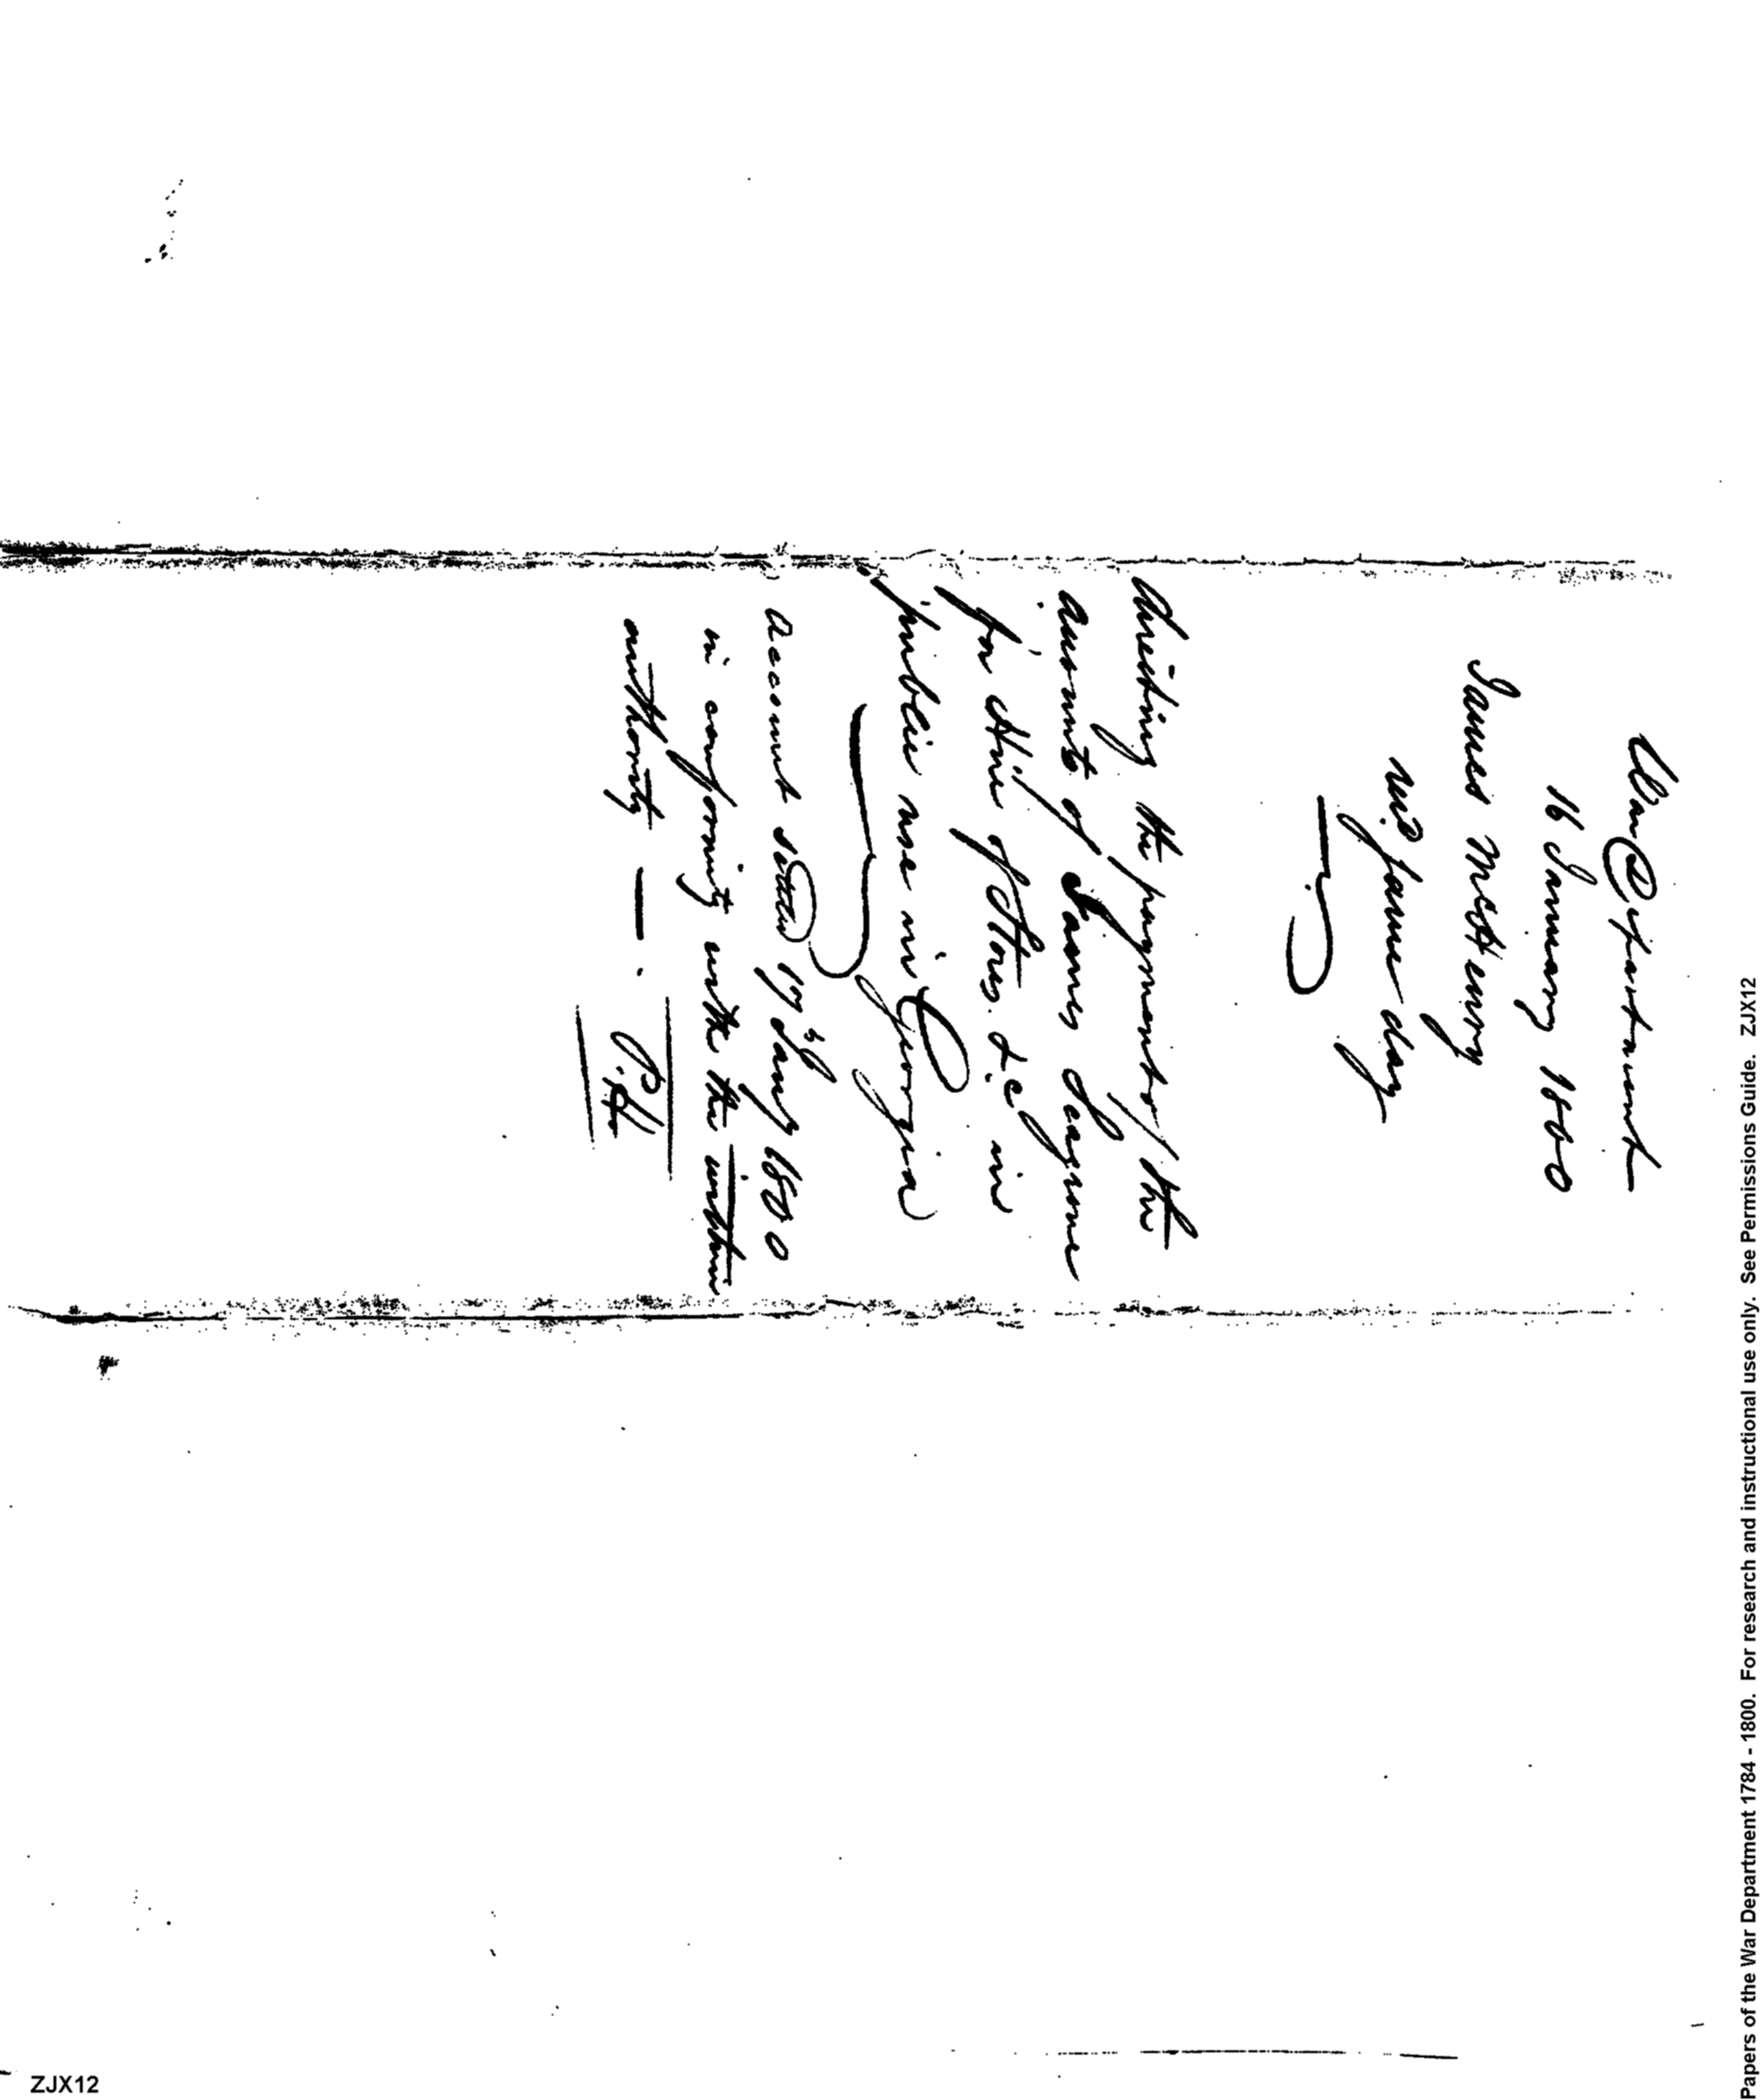 War Department
16 January 1800
James McHenry
recd same day
directing the payment of the
accounts of James Seagrove
for Hire of Stores &c in
public use in Georgia
account settled 17th Jany 1800
in conformity with the within
authority —.
P. H.
Papers of the War Department 1784 - 1800. For research and instructional use only. See Permissions Guide. ZJX12
ZJX12